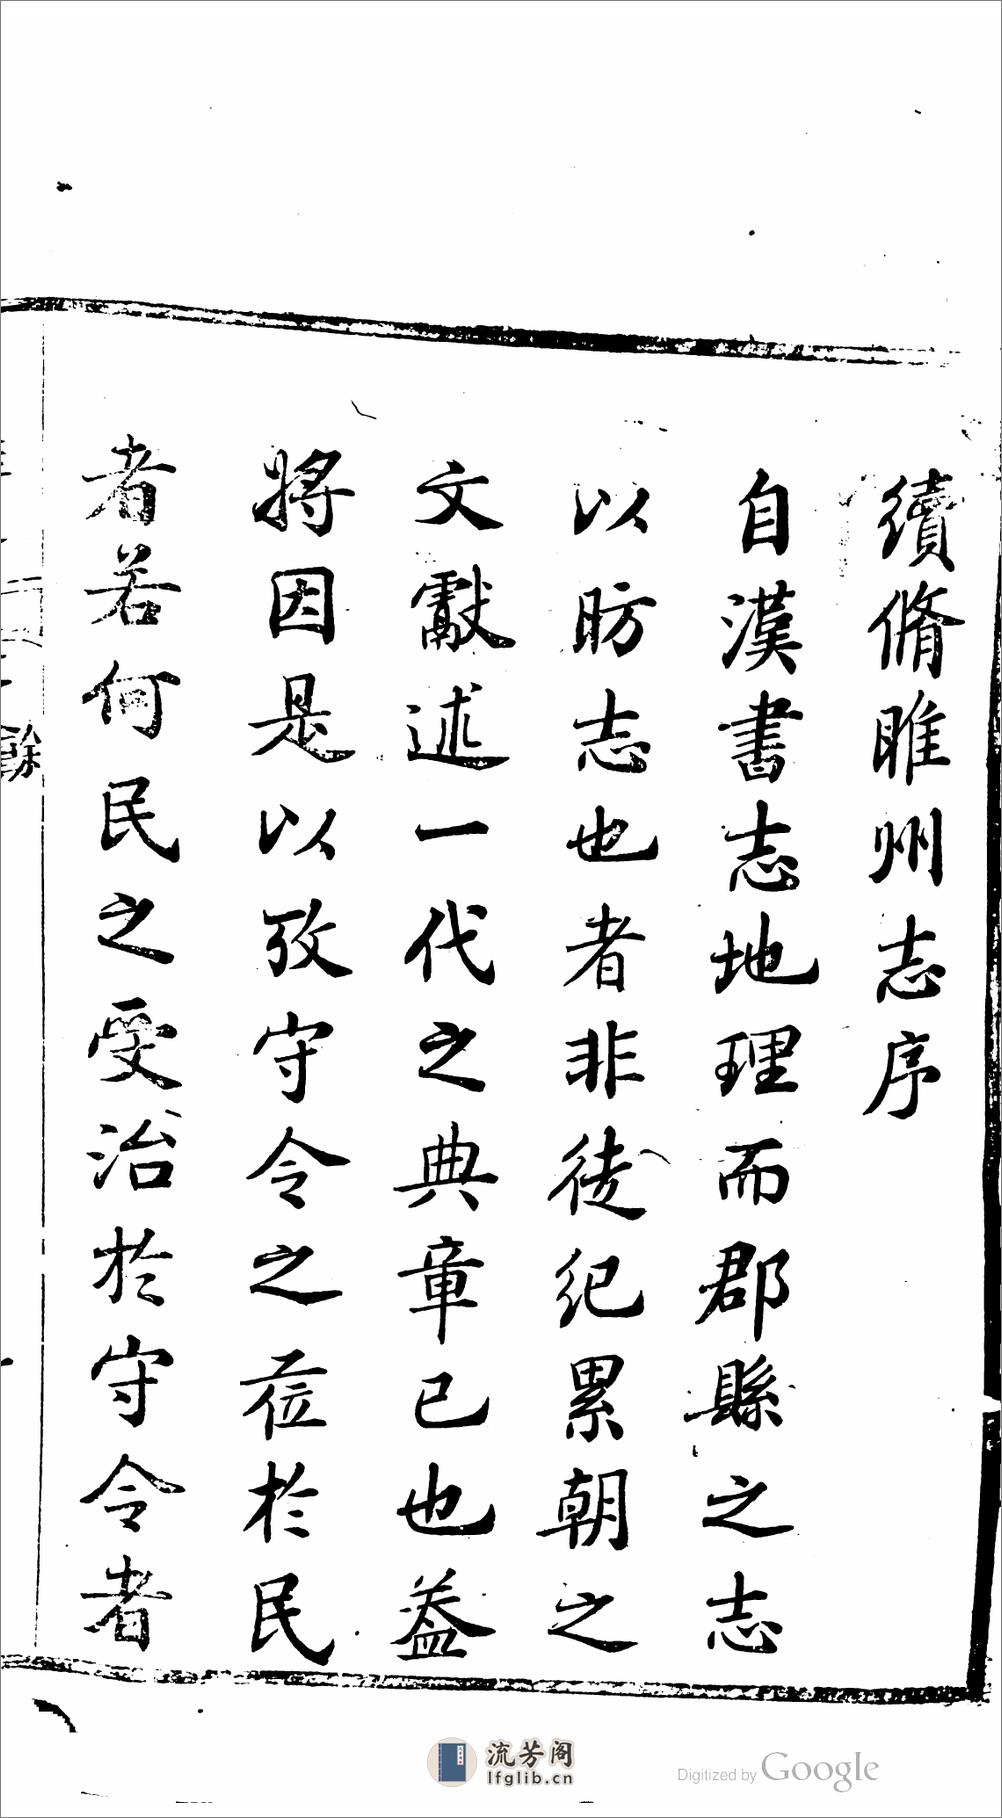 續脩睢州志序
自漢書志地理而郡縣之志
以昉志也者非徒紀累朝之
文獻述一代之典章已也葢
將因是以攷守令之莅於民
者若何民之受治於守令者
餘
流芳阁
lfglib.cn
Digitized by Google